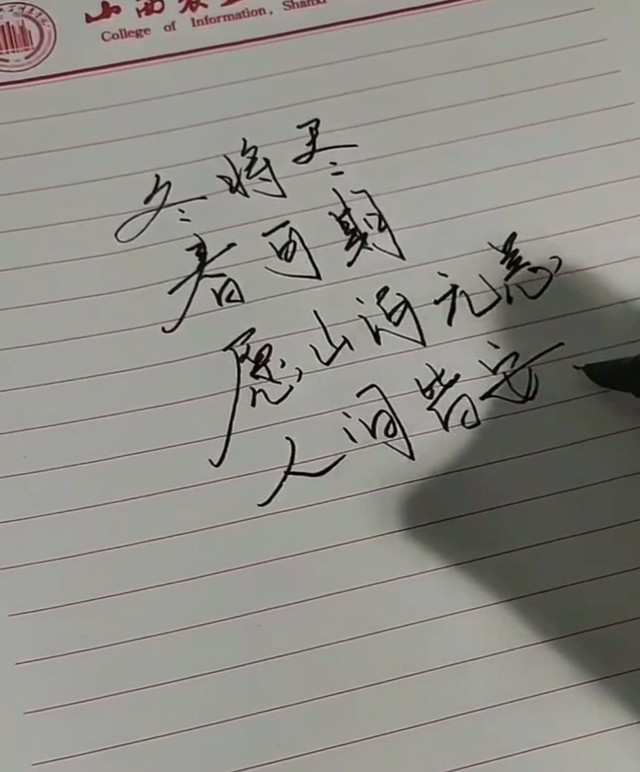 山西农
College of Information, Shanxi
冬将尽
春可期
愿山河无恙
人间皆安